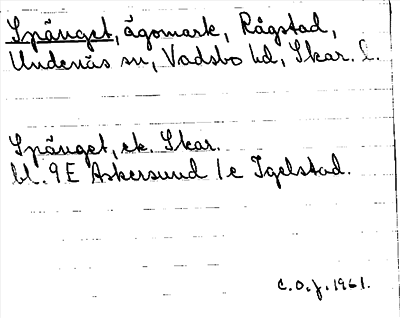 Spänget, ägomark, Rågstad,
Undenäs sn, Vadsbo hd, Skar. l.
Spänget, ek. Skar.
bl. 9E Askersund 1e Igelstad.
C.O.J. 1961.